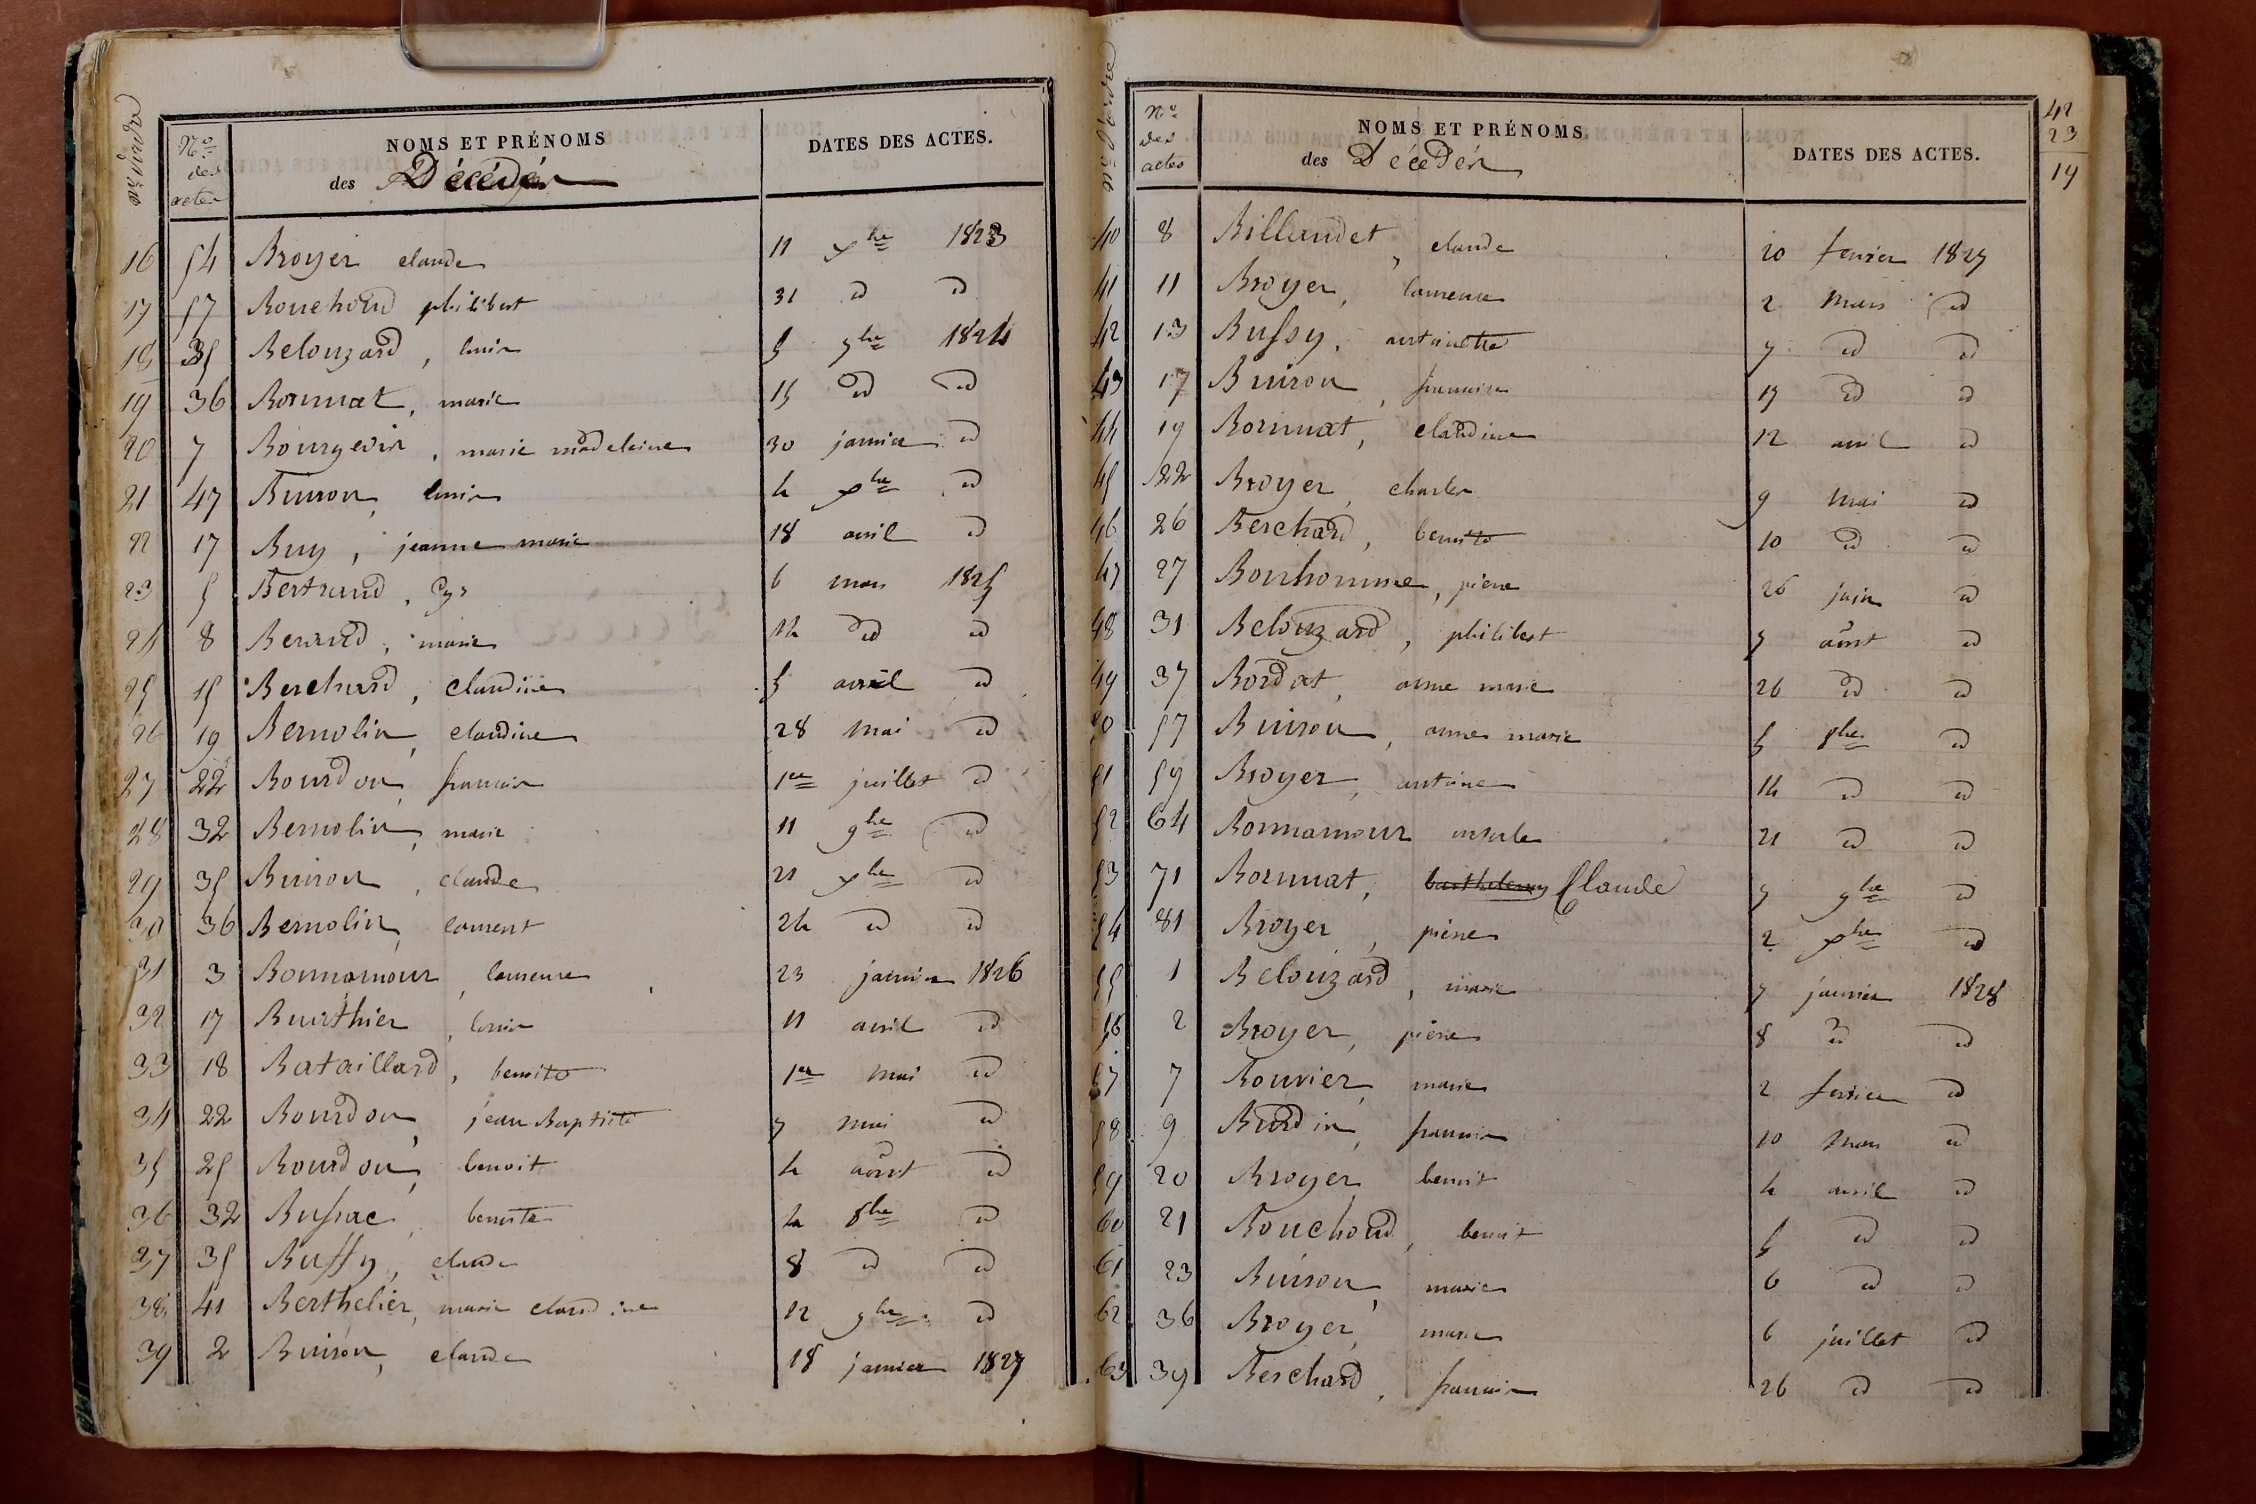 Nos des actes
NOMS ET PRÉNOMS
des Décédés
DATES DES ACTES.
16 54 Broyer claude 11 xbre 1823
17 57 Bouchoud philibert 31 id id
18 35 Belouzard, louis 5 7bre 1824
19 36 Bonnat, marie 15 id id
20 7 Bourgeois, marie madeleine 30 janvier id
21 47 Buiron, louis 4 xbre id
22 17 Buy, jeanne marie 18 avril id
23 5 Bertrand, Cyr 6 mars 1825
24 8 Beraud, marie 14 id id
25 15 Berchard, claudine 5 avril id
26 19 Bernolin, claudine 28 mai id
27 22 Bourdon, francois 1er juillet id
28 32 Bernolin, marie 11 9bre id
29 35 Buiron, claude 21 xbre id
30 36 Bernolin, laurent 24 id id
31 3 Bonnamour, laurence 23 janvier 1826
32 17 Burthier, louis 11 avril id
33 18 Bataillard, benoite 1er mai id
34 22 Bourdon, jean Baptiste 7 mai id
35 25 Bourdon, benoit 4 août id
36 32 Bussac, benoite 4 8bre id
37 35 Buffy, claude 8 id id
38 41 Berthelier, marie claudine 12 9bre id
39 2 Buiron, claude 18 janvier 1827
Nos des actes
NOMS ET PRÉNOMS
des Décédés
DATES DES ACTES.
42
23
19
40 8 Billaudet, claude 20 fevrier 1827
41 11 Broyer, laurence 2 mars id
42 13 Bussy, antoinette 7 id id
43 17 Buiron, francoise 17 id id
44 19 Bonnat, claudine 12 avril id
45 22 Broyer, charles 9 mai id
46 26 Berchard, benoite 10 id id
47 27 Bonhomme, pierre 26 juin id
48 31 Belouzard, philibert 7 août id
49 37 Bordat, anne marie 26 id id
50 57 Buiron, anne marie 5 8bre id
51 59 Broyer, antoine 14 id id
52 64 Bonnamour ursule 21 id id
53 71 Bonnat, barthelemy Claude 7 9bre id
54 81 Broyer, pierre 2 xbre id
55 1 Belouzard, marie 7 janvier 1828
56 2 Broyer, pierre 8 id id
57 7 Bouvier, marie 2 fevrier id
58 9 Burdin, francois 10 mars id
59 20 Broyer, benoit 4 avril id
60 21 Bouchoud, benoit 5 id id
61 23 Buiron, marie 6 id id
62 36 Broyer, marie 6 juillet id
63 39 Berchard, francois 26 id id